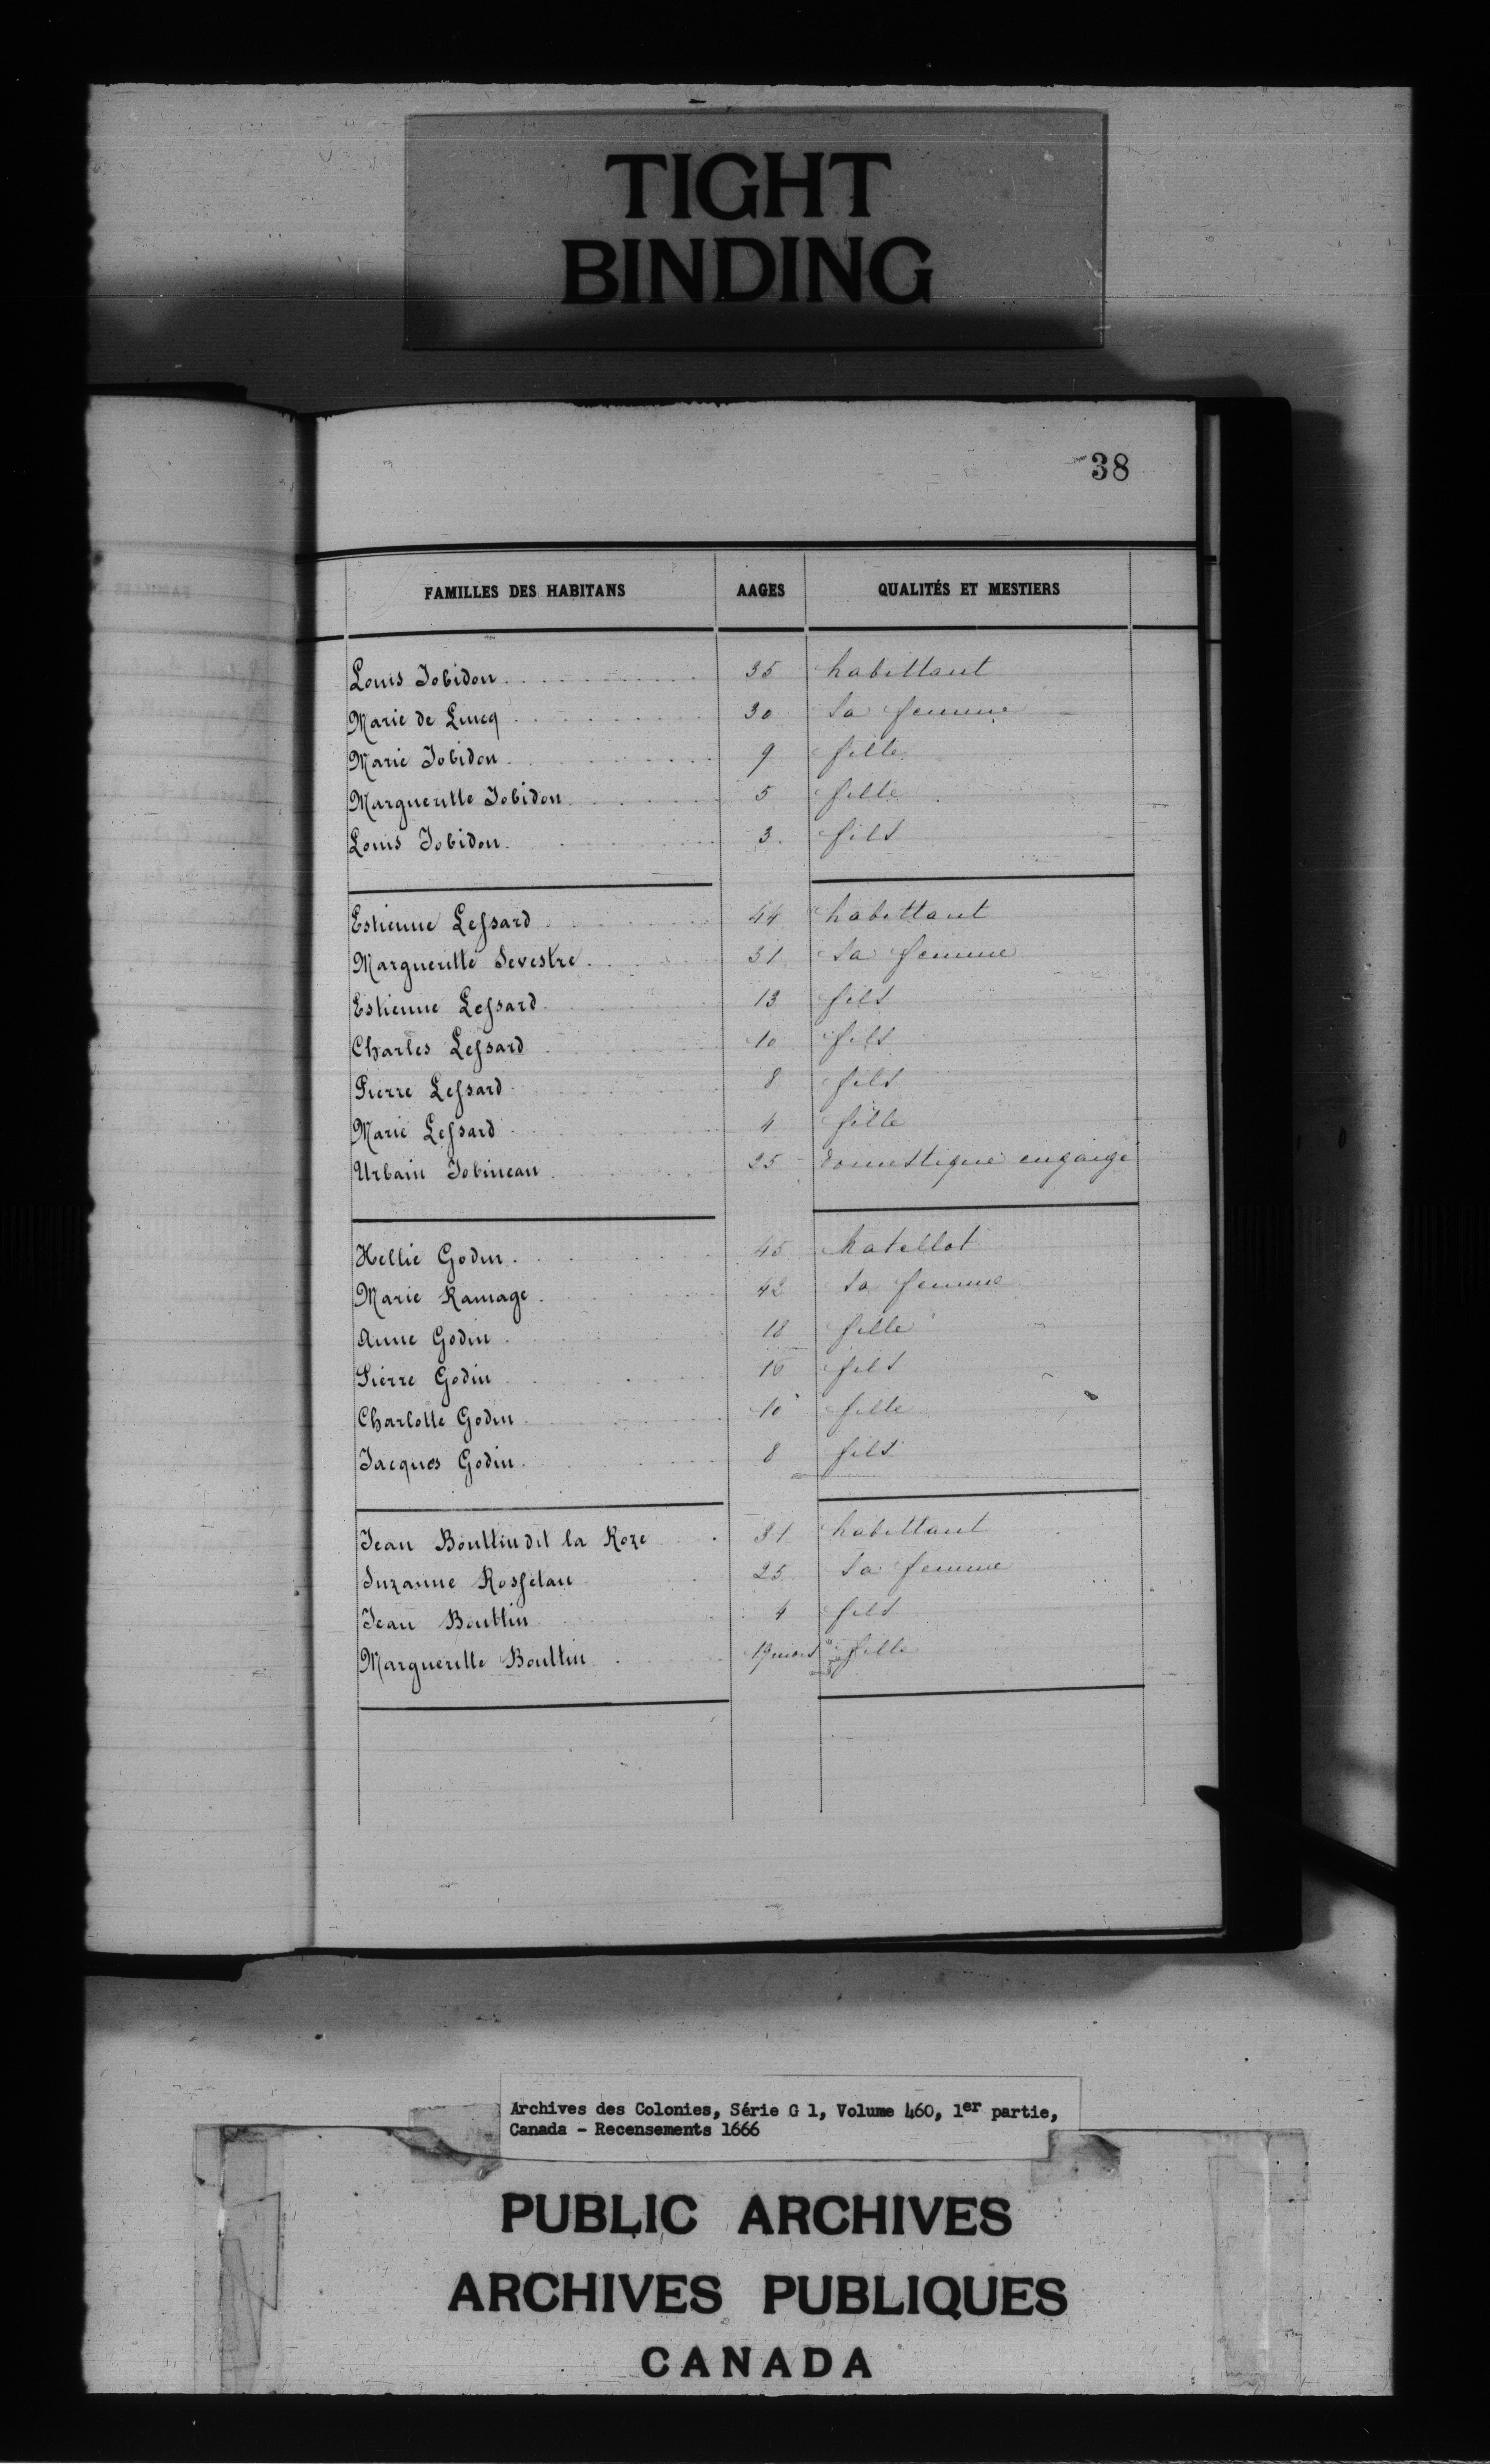 TIGHT
BINDING
38
FAMILLES DES HABITANS AAGES QUALITÉS ET MESTIERS
Louis Jobidon 35 habittant
Marie de Lincq 30 sa femme
Marie Jobidon 9 fille
Margueritte Jobidon 5 fille
Louis Jobidon 3 fils
Estienne Lessard 44 habittant
Margueritte Sevestre 31 sa femme
Estienne Lessard 13 fils
Charles Lessard 10 fils
Pierre Lessard 8 fils
Marie Lessard 4 fille
Urbain Jobineau 25 domestique engaigé
Hellie Godin 45 Matellot
Marie Ramage 42 sa femme
Anne Godin 18 fille
Pierre Godin 16 fils
Charlotte Godin 10 fille
Jacques Godin 8 fils
Jean Bouttin dit la Roze 31 habittant
Suzanne Rosselau 25 sa femme
Jean Bouttin 4 fils
Margueritte Bouttin 19 mois fille
Archives des Colonies, Série G 1, Volume 460, 1er partie,
Canada - Recensements 1666
PUBLIC ARCHIVES
ARCHIVES PUBLIQUES
CANADA